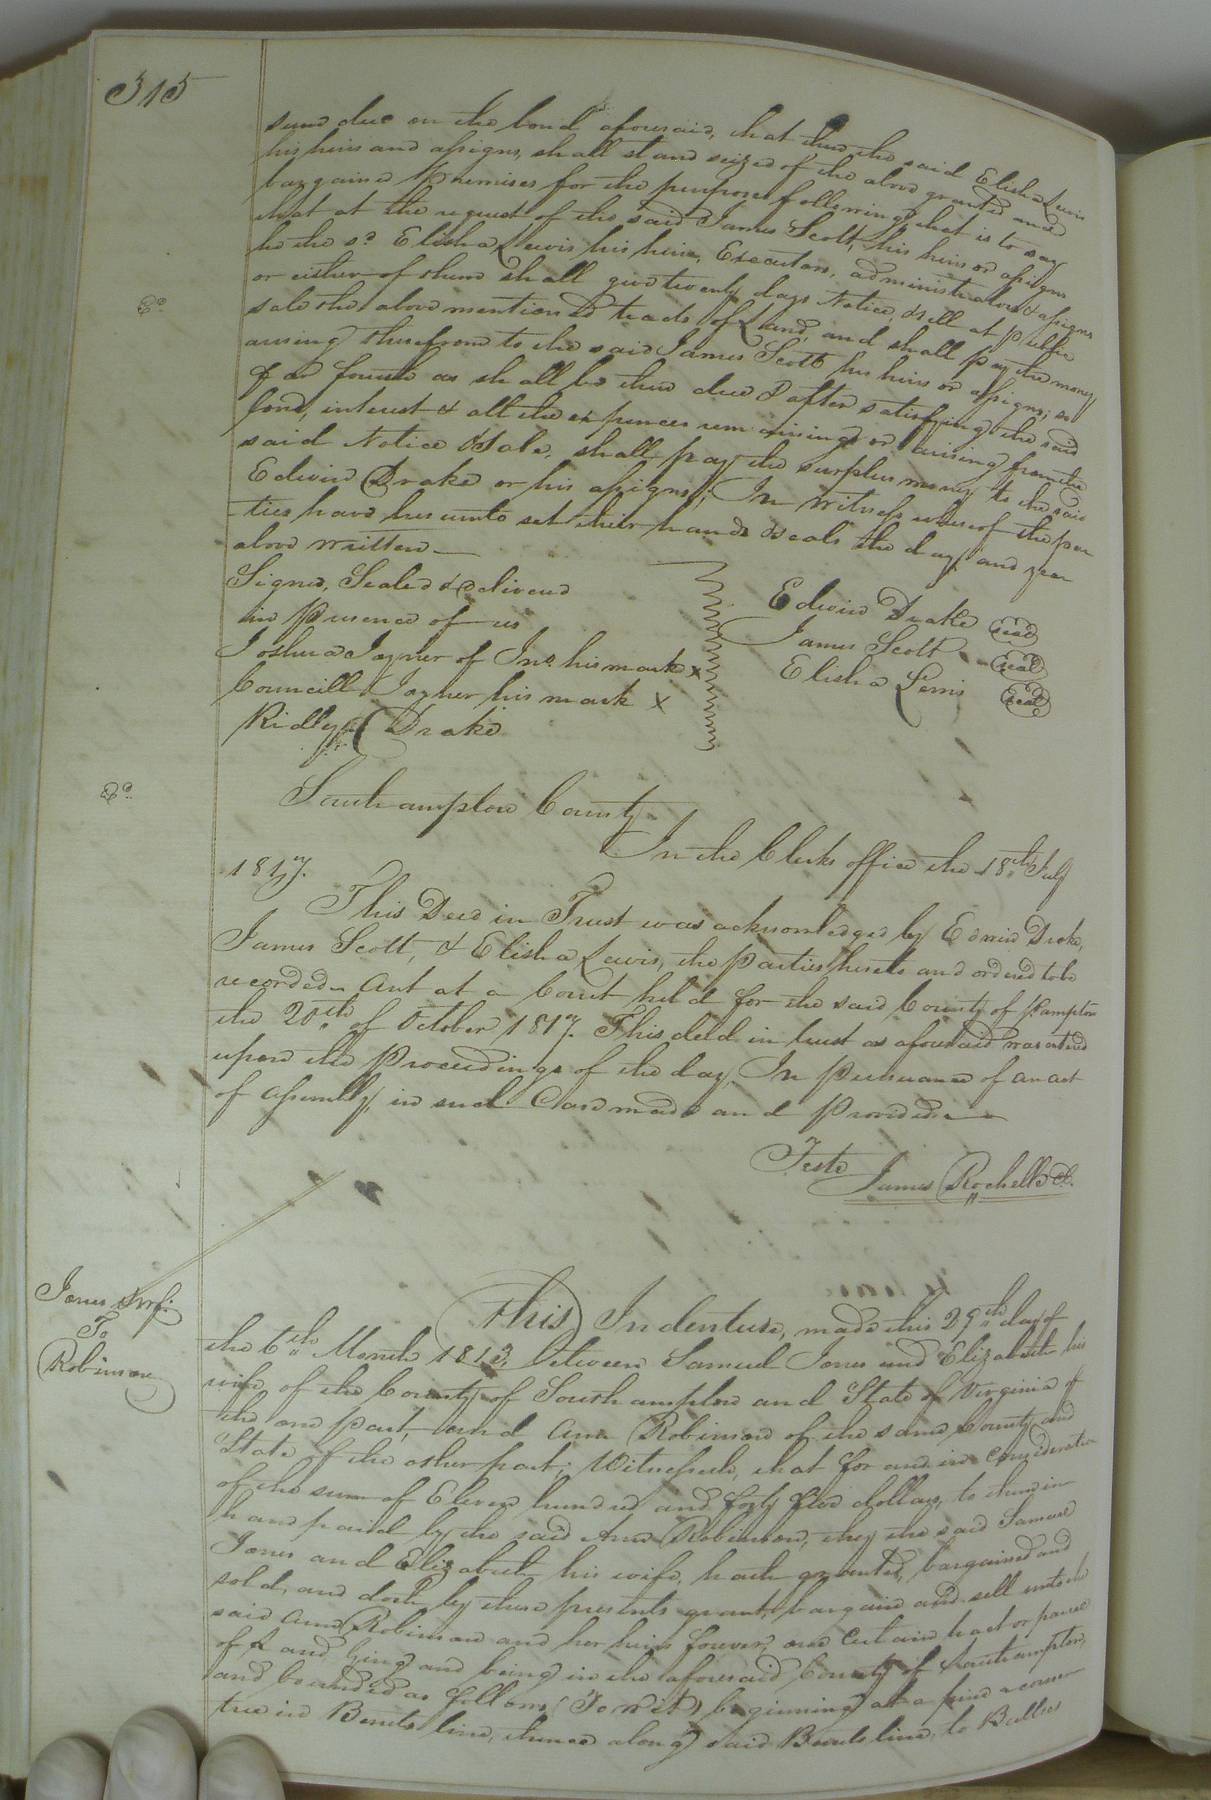 315
sum due on the bond aforesaid, that then the said Elisha Lewis
his heirs and assigns, shall stand seized of the above granted and
bargained Premises for the purposes following, that is to say
that at the request of the said James Scott, his heirs or assigns
he the sd. Elisha Lewis his heirs, Executors, administrators & assigns
or either of them shall give twenty days Notice, & sell at public
sale the above mentioned tracts of Land, and shall pay the money
arising therefrom to the said James Scott his heirs or assigns; so
far forth as shall be then due & after satisfying the said
bond, interest & all the expences remaining or arising from the
said Notice & Sale, shall pay the surplus money to the said
Edwin Drake or his assigns; In witness whereof the par
-ties have hereunto set their hands & seals the day and year
above written—
Signed, Sealed & delivered
in Presence of us
Joshua Joyner of Jno. his mark x
Councill Joyner his mark x
Ridley Drake
Edwin Drake (seal)
James Scott (seal)
Elisha Lewis (seal)
Southampton County
In the Clerks office the 18th July
1817.
This Deed in Trust was acknowledged by Edwin Drake,
James Scott, & Elisha Lewis, the Parties hereto and ordered to be
recorded. And at a Court held for the said County of Hampton
the 20th of October 1817. This deed in trust as aforesaid was entered
upon the Proceedings of the day, In Pursuance of an act
of Assembly, in such Case made and Provided—
Teste
James Rochelle Cl.
Jones & wf:
To
Robinson
This Indenture, made this 29th day of
the 6th Month 1813, between Samuel Jones and Elizabeth his
wife, of the County of Southampton and State of Virginia of
the one part, and Ann Robinson of the same County and
State of the other part; Witnesseth, that for and in Consideration
of the sum of Eleven hundred and forty five dollars, to them in
hand paid by the said Ann Robinson, they the said Samuel
Jones and Elizabeth his wife, hath granted, bargained and
sold, and doth by these presents grant, bargain and sell unto the
said Ann Robinson and her heirs forever, one Certain tract or parcel
of Land lying and being in the aforesaid County of Southampton,
and bounded as follows (Towit) beginning at a pine a corner
tree in line, thence along said line, to